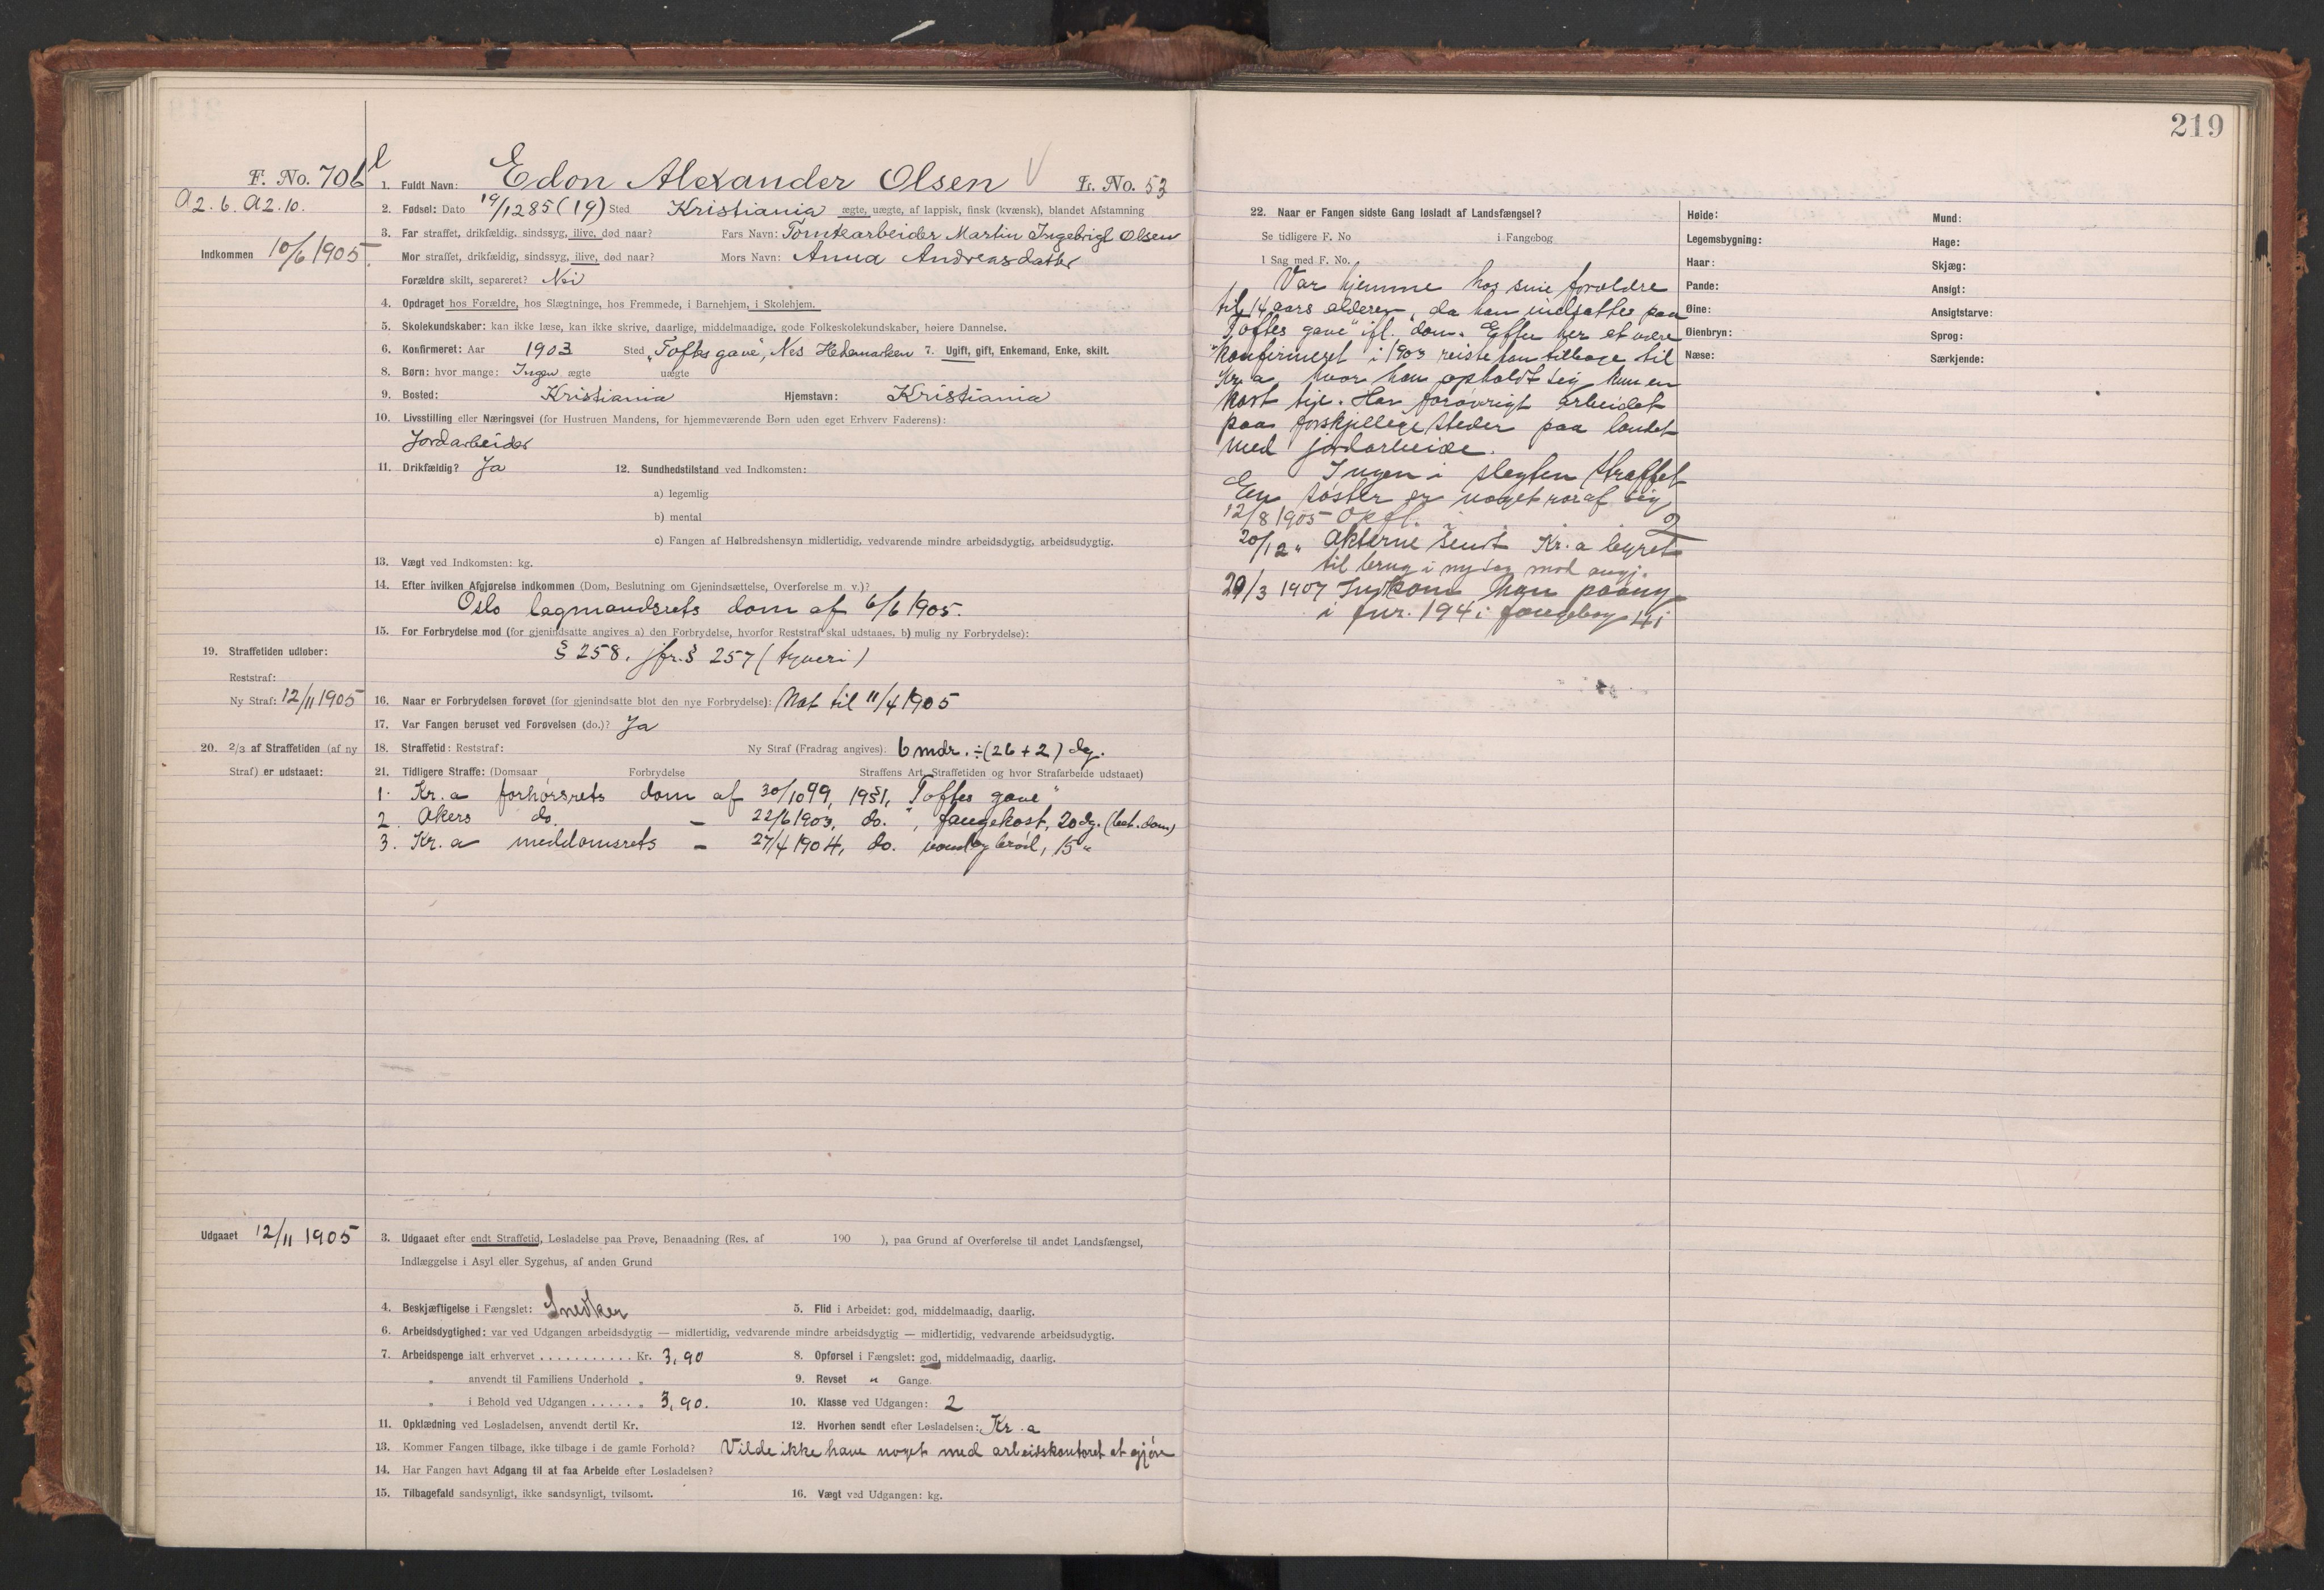 219
F. No. 706
A2.6. A2.10.
Indkommen 10/6 1905.
1. Fuldt Navn: Edon Alexander Olsen V L. No. 53
2. Fødsel: Dato 19/12 85 (19) Sted Kristiania ægte, uægte, af lappisk, finsk (kvænsk), blandet Afstamning
3. Far straffet, drikfældig, sindssyg, ilive, død naar? Fars Navn: Tomtearbeider Martin Ingebrigt Olsen
Mor straffet, drikfældig, sindssyg, ilive, død naar? Mors Navn: Anna Andreasdatter
Forældre skilt, separeret? Nei
4. Opdraget hos Forældre, hos Slægtninge, hos Fremmede, i Barnehjem, i Skolehjem.
5. Skolekundskaber: kan ikke læse, kan ikke skrive, daarlige, middelmaadige, gode Folkeskolekundskaber, høiere Dannelse.
6. Konfirmeret: Aar 1903 Sted „Toftes gave", Nes Hedemarken 7. Ugift, gift, Enkemand, Enke, skilt.
8. Børn: hvor mange: Ingen ægte uægte
9. Bosted: Kristiania Hjemstavn: Kristiania
10. Livsstilling eller Næringsvei (for Hustruen Mandens, for hjemmeværende Børn uden eget Erhverv Faderens):
Jordarbeider
11. Drikfældig? Ja 12. Sundhedstilstand ved Indkomsten:
a) legemlig
b) mental
c) Fangen af Helbredshensyn midlertidig, vedvarende mindre arbeidsdygtig, arbeidsudygtig.
13. Vægt ved Indkomsten: kg.
14. Efter hvilken Afgjørelse indkommen (Dom, Beslutning om Gjenindsættelse, Overførelse m. v.)?
Oslo lagmandsrets dom af 6/6 1905.
15. For Forbrydelse mod (for gjenindsatte angives a) den Forbrydelse, hvorfor Reststraf skal udstaaes, b) mulig ny Forbrydelse):
§ 258, jfr. § 257 (tyveri)
19. Straffetiden udløber:
Reststraf:
Ny Straf: 12/11 1905
16. Naar er Forbrydelsen forøvet (for gjenindsatte blot den nye Forbrydelse): Nat til 11/4 1905
17. Var Fangen beruset ved Forøvelsen (do.)? Ja
20. 2/3 af Straffetiden (af ny
Straf) er udstaaet:
18. Straffetid: Reststraf: Ny Straf (Fradrag angives). 6 mdr. ÷ (26 + 2) dg.
21. Tidligere Straffe: (Domsaar Forbrydelse Straffens Art, Straffetiden og hvor Strafarbeide udstaaet)
1. Kr.a forhørsrets dom af 30/10 99, 19§1, Toftes gave"
2. Akers do. — 22/6 1903, do. ", fangekost, 20 dg. (bet. dom)
3. Kr.a meddomsrets — 27/4 1904, do. vand og brød, 15 "
Udgaaet 12/11 1905
3. Udgaaet efter endt Straffetid, Løsladelse paa Prøve, Benaadning (Res. af 190 ), paa Grund af Overførelse til andet Landsfængsel,
Indlæggelse i Asyl eller Sygehus, af anden Grund
4. Beskjæftigelse i Fængslet: Snedker 5. Flid i Arbeidet: god, middelmaadig, daarlig.
6. Arbeidsdygtighed: var ved Udgangen arbeidsdygtig — midlertidig, vedvarende mindre arbeidsdygtig — midlertidig, vedvarende arbeidsudygtig.
7. Arbeidspenge ialt erhvervet . . . . . . . . . . . Kr. 3,90 8. Opførsel i Fængslet: god, middelmaadig, daarlig.
„ anvendt til Familiens Underhold „ 9. Revset " Gange.
„ i Behold ved Udgangen . . . . . „ 3,90. 10. Klasse ved Udgangen: 2
11. Opklædning ved Løsladelsen, anvendt dertil Kr. 12. Hvorhen sendt efter Løsladelsen: Kr.a
13. Kommer Fangen tilbage, ikke tilbage i de gamle Forhold? Vilde ikke have noget med arbeidskontoret at gjøre
14. Har Fangen havt Adgang til at faa Arbeide efter Løsladelsen?
15. Tilbagefald sandsynligt, ikke sandsynligt, tvilsomt. 16. Vægt ved Udgangen: kg.
22. Naar er Fangen sidste Gang løsladt af Landsfængsel?
Se tidligere F. No i Fangebog
I Sag med F. No.
Var hjemme hos sine forældre
til 14 aars alderen, da han indsattes paa
"Toftes gave" ifl. dom. Efter her at være
konfirmeret i 1903 reiste han tilbage til
Kr.a hvor han opholdt sig kun en
kort tije. Har forøvrigt arbeidet
paa forskjellige steder paa landet
med jordarbeide.
Ingen i slegten straffet
En søster er noget rar af sig
12/8 1905 Opfl. i 2
20/12 " Akterne sendt Kr.a byret
til brug i ny sag mod angj.
29/3 1907 Indkom han paany
i fnr. 194 i fangebog 4i
Høide:
Legemsbygning:
Haar:
Pande:
Øine:
Øienbryn:
Næse:
Mund:
Hage:
Skjæg:
Ansigt:
Ansigtstarve:
Sprog:
Særkjende: